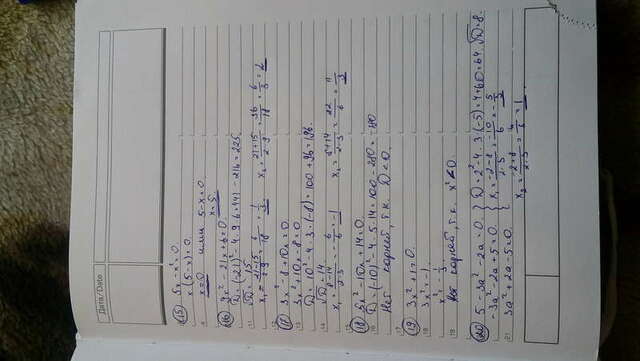 Дата/Date
15) 5x - x² = 0.
x (5 - x) = 0.
x = 0 или 5 - x = 0.
x = 5.
16) 9x² - 21x + 6 = 0.
D = (-21)² - 4 · 9 · 6 = 441 - 216 = 225.
√D = 15
x₁ = 21-15/2·9 = 6/18 = 1/3 x₂ = 21+15/2·9 = 36/18 = 6/3 = 2
17) 3x² - 8 + 10x = 0.
3x² + 10x - 8 = 0.
D = 10² - 4 · 3 · (-8) = 100 + 96 = 196.
√D = 14
x₁ = 8-14/2·3 = -6/6 = -1 x₂ = 8+14/2·3 = 22/6 = 11/3
18) 5x² - 10x + 14 = 0.
D = (-10)² - 4 · 5 · 14 = 100 - 280 = -180
Нет корней, т.к. D < 0.
19) 3x² + 1 = 0.
3x² = -1.
x² = -1/3
Нет корней, т.к. x² < 0.
20) 5 - 3a² - 2a = 0. D = 2² - 4 · 3 · (-5) = 4 + 60 = 64. √D = 8.
-3a² - 2a + 5 = 0. x₁ = -2-8/2·3 = -10/6 = -5/3
3a² + 2a - 5 = 0.
x₂ = -2+8/2·3 = 6/6 = 1